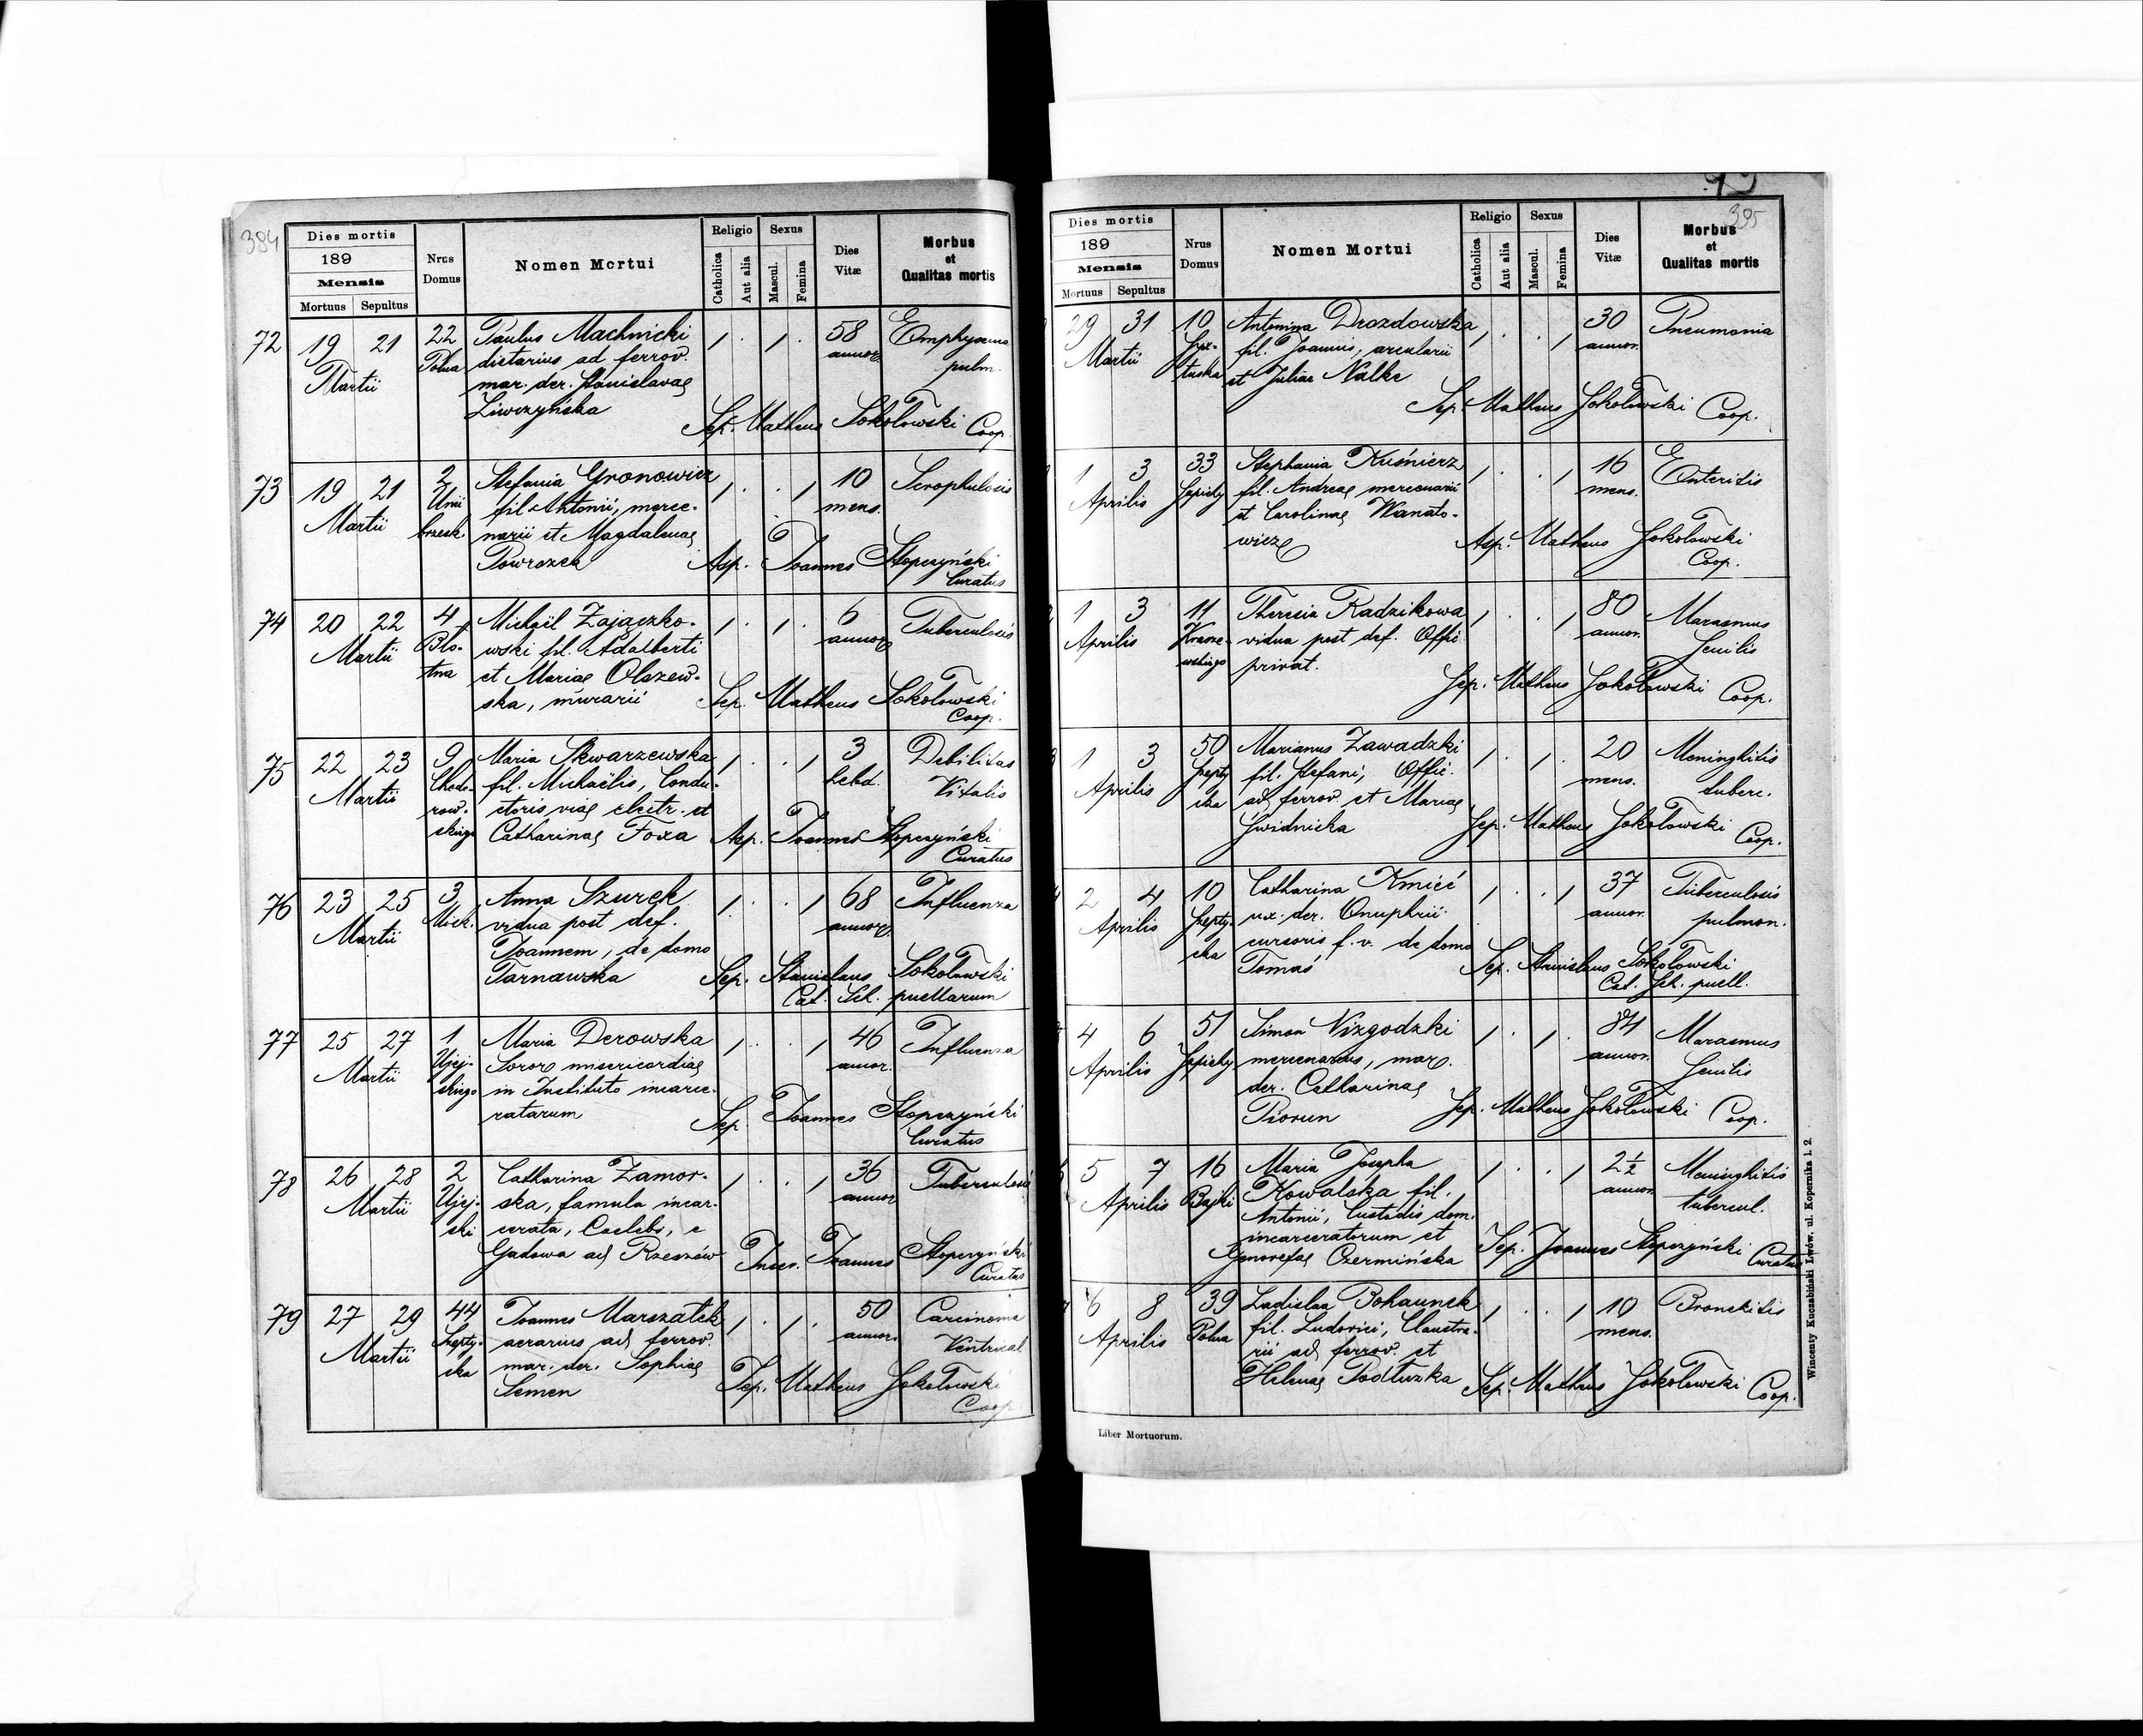 384
Dies mortis
189
Mensis
Mortuus Sepultus
Nrus
Domus
Nomen Mortui
Religio
Catholica
Aut alia
Sexus
Mascul.
Femina
Dies
Vitæ
Morbus
et
Qualitas mortis
72 19 21 22 Paulus Machnicki 58 Emphysema
Martii Polna dietarius ad ferrov. annor. pulm.
mar. der. Stanislavae
Liwczyńska Sep. Matheus Sokołowski Coop.
73 19 21 2 Stefania Gronowicz 10 Scrophulosis
Martii Unii fil. Antonii, merce- mens.
brzesk. narii et Magdalenae
Powrozek Asp. Joannes Stopczyński
Curatus
74 20 22 4 Michaël Zajączko- 6 Tuberculosis
Martii Bło- wski fil. Adalberti annor.
tna et Mariae Olszew-
ska, murarii Sep. Matheus Sokołowski
Coop.
75 22 23 9 Maria Skwarzewska 3 Debilitas
Martii Chodo- fil. Michaëlis, Condu- hebd. Vitalis
row- ctoris viae electr. et
skiego Catharinae Foxa Asp. Joannes Stopczyński
Curatus
76 23 25 3 Anna Szurek 68 Influenza
Martii Mick. vidua post def. annor.
Joannem, de domo
Tarnawska Sep. Stanislaus Sokołowski
Cat. Sch. puellarum
77 25 27 1 Maria Derowska 46 Influenza
Martii Ujej- Soror misericordiae annor.
skiego in Instituto incarce-
ratarum Sep. Joannes Stopczyński
Curatus
78 26 28 2 Catharina Zamor- 36 Tuberculosis
Martii Ujej- ska, famula incar- annor.
ski cerata, Caelebs, e
Gadowa ad Rzeszów Joannes Stopczyński
Curatus
79 27 29 44 Joannes Marszałek 50 Carcinoma
Martii Szepty- aerarius ad ferrov. annor. Ventricul
cka mar. der. Sophiae
Semen Sep. Matheus Sokołowski
Coop
395
Dies mortis
189
Mensis
Mortuus Sepultus
Nrus
Domus
Nomen Mortui
Religio
Catholica
Aut alia
Sexus
Mascul.
Femina
Dies
Vitæ
Morbus
et
Qualitas mortis
29 31 10 Antonina Drozdowska 30 Pneumonia
Martii fil. Joannis, arcularii annor.
et Juliae Nalke
Sep. Matheus Sokołowski Coop.
1 3 33 Stephania Kuśnierz 16 Enteritis
Aprilis Sapiehy fil. Andreae mercenarii mens.
et Carolinae Wanato-
wicz Asp. Matheus Sokołowski
Coop.
1 3 11 Theresia Radzikowa 80 Marasmus
Aprilis Krasze- vidua post def. Offic. annor. Senilis
wskiego privat.
Sep. Matheus Sokołowski Coop.
1 3 50 Marianus Zawadzki 20 Meninghitis
Aprilis Szepty fil. Stefani, Offic. mens. tuberc.
cka ad ferrov et Mariae
Świdnicka Sep. Matheus Sokołowski Coop.
2 4 10 Catharina Kmieć 37 Tuberculosis
Aprilis Szepty- ux. der. Onuphrii annor. pulmon.
cka cursoris f. v. de domo
Tomaś Sep. Stanislaus Sokołowski
Cat. Sch. puell.
4 6 51 Simon Nizgodzki 84 Marasmus
Aprilis Sapiehy mercenarius, mar. annor. Senilis
der. Catharinae
Piorun Sep. Matheus Sokołowski Coop.
5 7 16 Maria Josepha 2½ Meninghitis
Aprilis Bajki Kowalska fil. annor. tubercul.
Antonii, Custodis dom.
incarceratorum et
Genovefae Czermińska Sep. Joannes Stopczyński Curatus
6 8 39 Ladislaa Bohaunek 10 Bronchitis
Aprilis Polna fil. Ludovici, Claustra- mens.
rii ad ferrov. et
Helenae Podłuzka Sep. Matheus Sokołowski Coop.
Liber Mortuorum.
Wincenty Kuczabiński Lwów, ul. Kopernika l. 2.